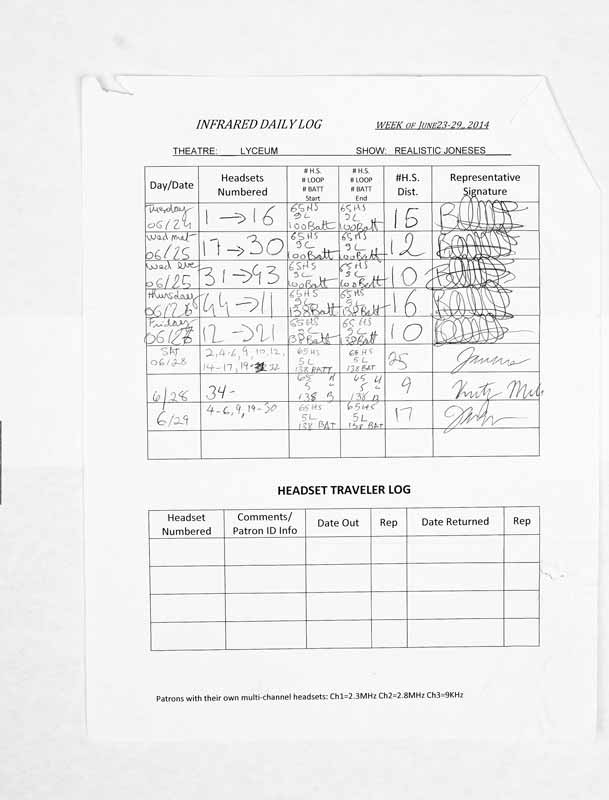 INFRARED DAILY LOG WEEK OF JUNE23-29,, 2014
THEATRE: LYCEUM SHOW: REALISTIC JONESES
Day/Date Headsets Numbered # H.S. # LOOP # BATT Start # H.S. # LOOP # BATT End #H.S. Dist. Representative Signature
Tuesday 06/24 1 → 16 65HS 9L 100Batt 65HS 9L 100Batt 15
Wed mat 06/25 17 → 30 65HS 9L 100Batt 65HS 9L 100Batt 12
Wed eve 06/25 31 → 43 65HS 9L 100Batt 65HS 9L 100Batt 10
Thursday 06/26 44 → 11 65HS 9L 138Batt 65HS 9L 138Batt 16
Friday 06/27 12 → 21 65HS 9L 138Batt 65HS 9L 138Batt 10
Sat 06/28 2, 4-6, 9, 10, 12, 14-17, 19- 32 65HS 5L 138 BATT 65 HS 5L 138 BAT 25
6/28 34- 65 H 5 L 138 B 65 H 5 L 138 B 9
6/29 4-6, 9, 19-30 65HS 5L 138 BAT 65HS 5L 138 BAT 17
HEADSET TRAVELER LOG
Headset Numbered Comments/ Patron ID Info Date Out Rep Date Returned Rep
Patrons with their own multi-channel headsets: Ch1=2.3MHz Ch2=2.8MHz Ch3=9KHz